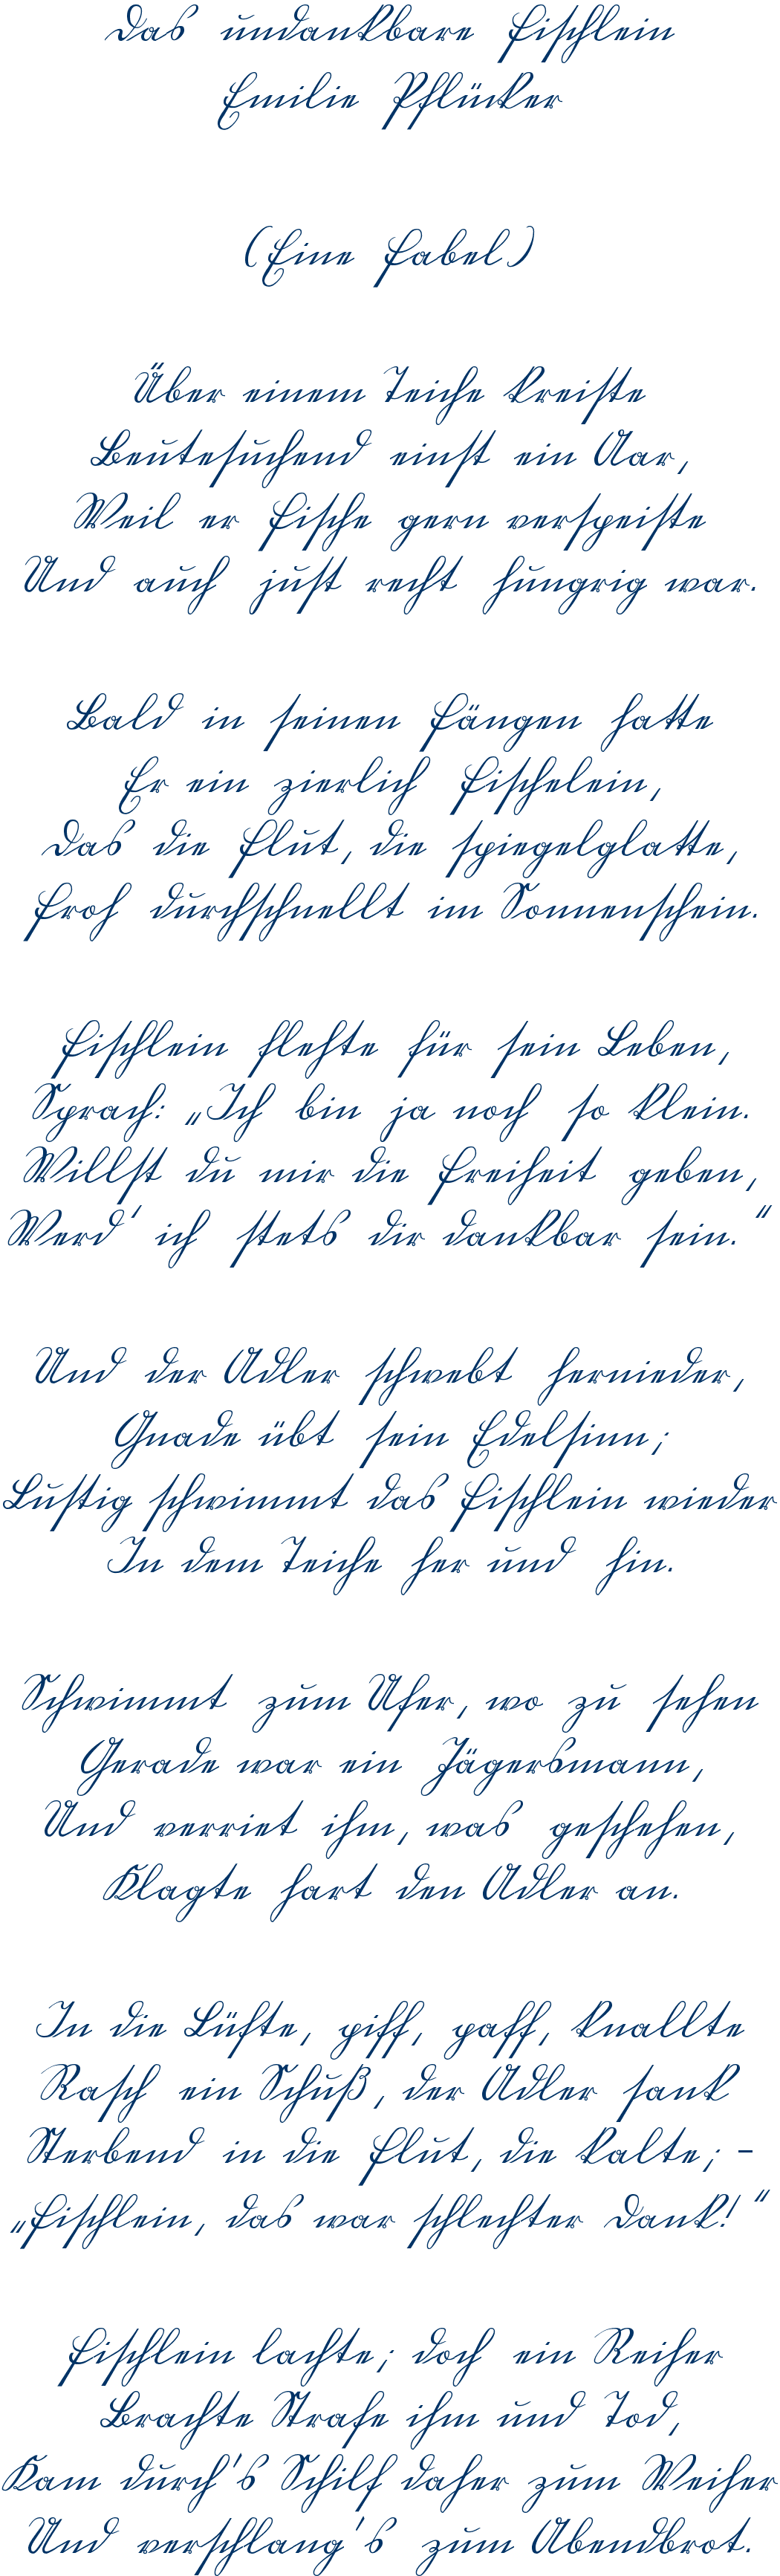 Das undankbare Fischlein
Emilie Pflücker
(Eine Fabel)
Über einem Teiche kreiste
Beutesuchend einst ein Aar,
Weil er Fische gern verspeiste
Und auch just recht hungrig war.
Bald in seinen Fängen hatte
Er ein zierlich Fischelein,
Das die Flut, die spiegelglatte,
Froh durchschnellt im Sonnenschein.
Fischlein flehte für sein Leben,
Sprach: „Ich bin ja noch so klein.
Willst du mir die Freiheit geben,
Werd' ich stets dir dankbar sein."
Und der Adler schwebt hernieder,
Gnade übt sein Edelsinn;
Lustig schwimmt das Fischlein wieder
In dem Teiche her und hin.
Schwimmt zum Ufer, wo zu sehen
Gerade war ein Jägersmann,
Und verriet ihm, was geschehen,
Klagte hart den Adler an.
In die Lüfte, piff, paff, knallte
Rasch ein Schuß, der Adler sank
Sterbend in die Flut, die kalte; –
„Fischlein, das war schlechter Dank!"
Fischlein lachte; doch ein Reiher
Brachte Strafe ihm und Tod,
Kam durch's Schilf daher zum Weiher
Und verschlang's zum Abendbrot.